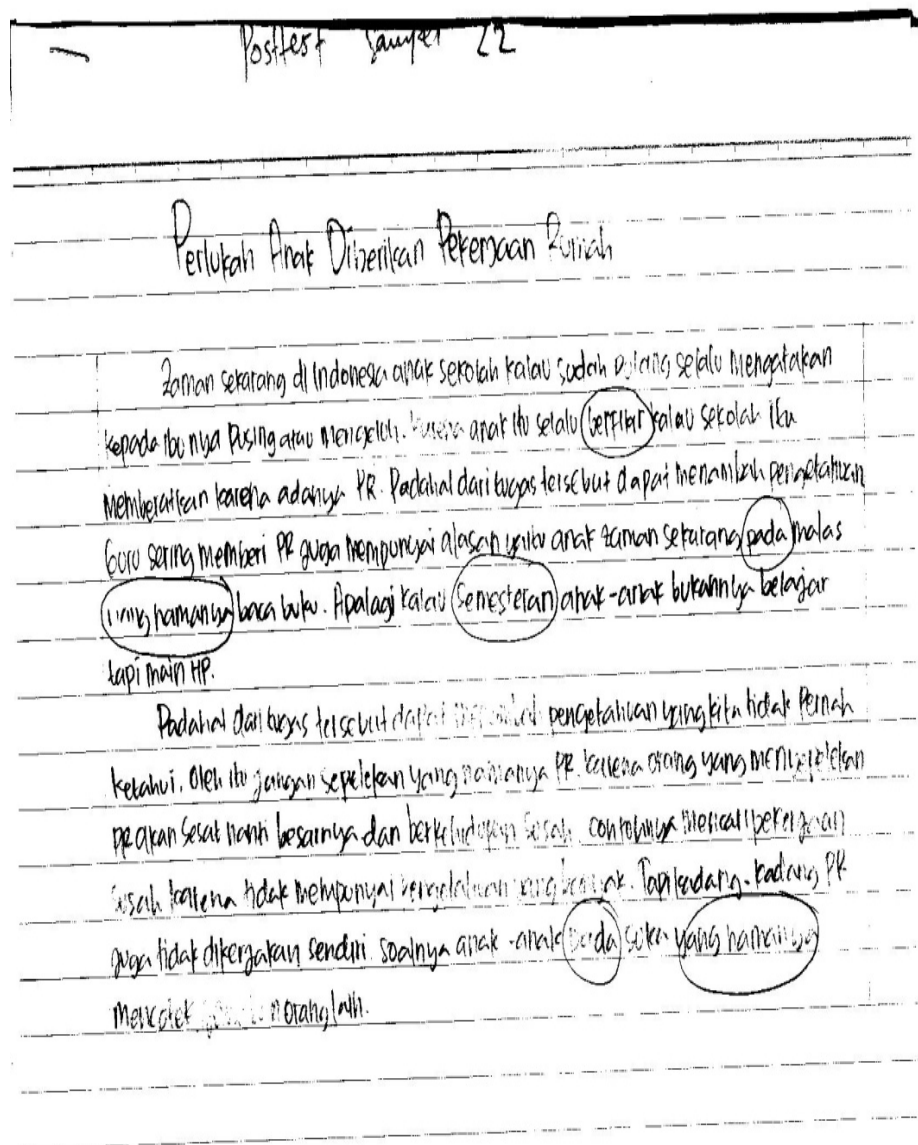 Posttest Sampel 22
Perlukah Anak Diberikan Pekerjaan Rumah
Zaman sekarang di Indonesia anak sekolah kalau sudah pulang selalu mengatakan
kepada ibunya pusing atau mengeluh. Karena anak itu selalu berfikir kalau sekolah itu
memberatkan karena adanya PR. Padahal dari tugas tersebut dapat menambah pengetahuan
Guru sering memberi PR juga mempunyai alasan yaitu anak zaman sekarang pada malas
yang namanya baca buku. Apalagi kalau semesteran anak-anak bukannya belajar
tapi main HP.
Padahal dari tugas tersebut dapat pengetahuan yang kita tidak pernah
ketahui. Oleh itu jangan sepelekan yang namanya PR. karena orang yang menyepelekan
PR akan sesat nanti besarnya dan berkehidupan susah contohnya mencari pekerjaan
susah karena tidak mempunyai pengetahuan yang banyak. Tapi kadang-kadang PR
juga tidak dikerjakan sendiri soalnya anak-anak pada suka yang namanya
mencotek orang lain.